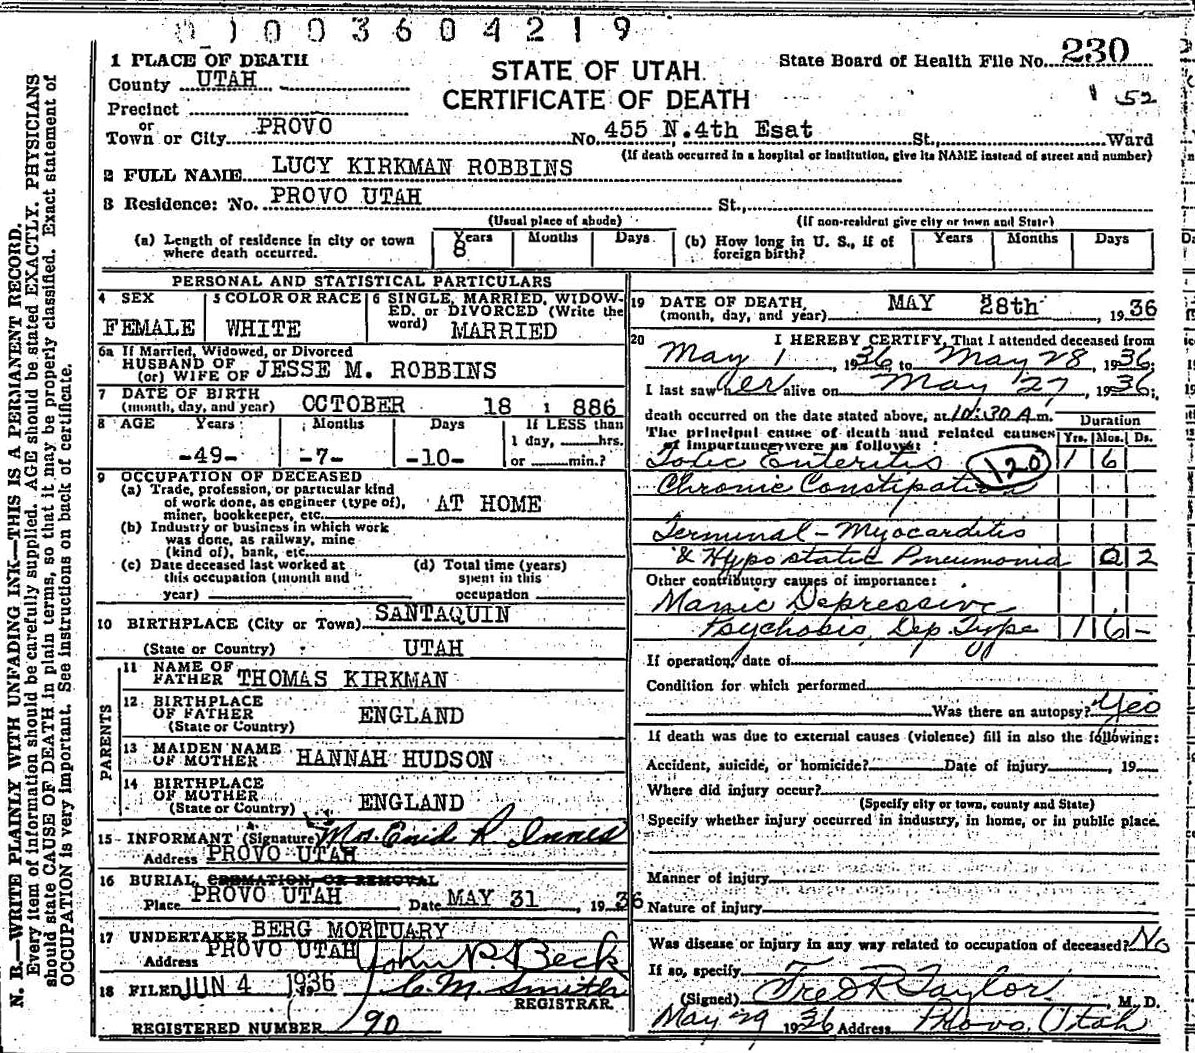 01003604219
1 PLACE OF DEATH
County UTAH
Precinct
or
Town or City PROVO
STATE OF UTAH
CERTIFICATE OF DEATH
State Board of Health File No. 230
1 52
No. 455 N.4th Esat St., Ward
(If death occurred in a hospital or institution, give its NAME instead of street and number)
2 FULL NAME LUCY KIRKMAN ROBBINS
3 Residence: No. PROVO UTAH St.,
(Usual place of abode) (If non-resident give city or town and State)
(a) Length of residence in city or town where death occurred. Years 8 Months Days
(b) How long in U. S., if of foreign birth? Years Months Days
PERSONAL AND STATISTICAL PARTICULARS
4 SEX FEMALE
5 COLOR OR RACE WHITE
6 SINGLE, MARRIED, WIDOWED, or DIVORCED (Write the word) MARRIED
6a If Married, Widowed, or Divorced
HUSBAND OF
(or) WIFE OF JESSE M. ROBBINS
7 DATE OF BIRTH
(month, day, and year) OCTOBER 18 1 886
8 AGE Years Months Days If LESS than
1 day, hrs.
-49- -7- -10- or min.?
9 OCCUPATION OF DECEASED
(a) Trade, profession, or particular kind
of work done, as engineer (type of), AT HOME
miner, bookkeeper, etc.
(b) Industry or business in which work
was done, as railway, mine
(kind of), bank, etc.
(c) Date deceased last worked at
this occupation (month and
year)
(d) Total time (years)
spent in this
occupation
10 BIRTHPLACE (City or Town) SANTAQUIN
(State or Country) UTAH
PARENTS
11 NAME OF
FATHER THOMAS KIRKMAN
12 BIRTHPLACE
OF FATHER ENGLAND
(State or Country)
13 MAIDEN NAME
OF MOTHER HANNAH HUDSON
14 BIRTHPLACE
OF MOTHER ENGLAND
(State or Country)
15 INFORMANT (Signature) Mrs Enid R. Innes
Address PROVO UTAH
16 BURIAL, CREMATION OR REMOVAL
Place PROVO UTAH Date MAY 31, 1936
17 UNDERTAKER BERG MORTUARY
Address PROVO UTAH John P. Beck
18 FILED JUN 4 1936 C. M. Smith
REGISTRAR.
REGISTERED NUMBER 90
19 DATE OF DEATH
(month, day, and year) MAY 28th, 1936
20 I HEREBY CERTIFY, That I attended deceased from
May 1, 1936, to May 28, 1936;
I last saw her alive on May 27, 1936;
death occurred on the date stated above, at 10:30 A.m.
The principal cause of death and related causes
of importance were as follows:
Duration
Yrs. Mos. Ds.
Toxic Enteritis 120 1 6
Chronic Constipation
Terminal - Myocarditis
& Hypostatic Pneumonia 0 2
Other contributory causes of importance:
Manic Depressive
Psychosis, Dep. Type 1 6 -
If operation, date of
Condition for which performed
Was there an autopsy? Yes
If death was due to external causes (violence) fill in also the following:
Accident, suicide, or homicide? Date of injury , 19
Where did injury occur?
(Specify city or town, county and State)
Specify whether injury occurred in industry, in home, or in public place.
Manner of injury
Nature of injury
Was disease or injury in any way related to occupation of deceased? No
If so, specify
(Signed) Fred R Taylor, M. D.
May 29 1936 Address Provo, Utah
N. B.—WRITE PLAINLY WITH UNFADING INK—THIS IS A PERMANENT RECORD.
Every item of information should be carefully supplied. AGE should be stated EXACTLY. PHYSICIANS
should state CAUSE OF DEATH in plain terms, so that it may be properly classified. Exact statement of
OCCUPATION is very important. See instructions on back of certificate.